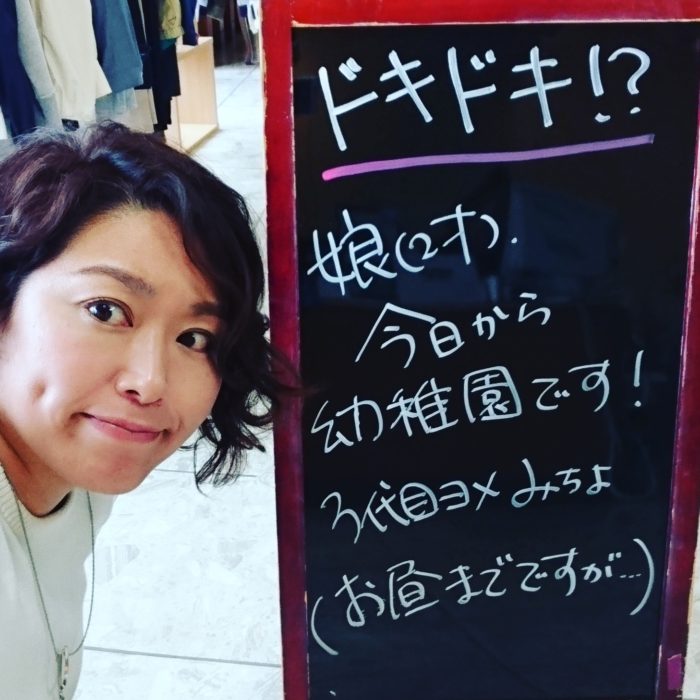 ドキドキ!?
娘(2才).
今日から
幼稚園です!
3代目ヨメ みちよ
(お昼までですが…)